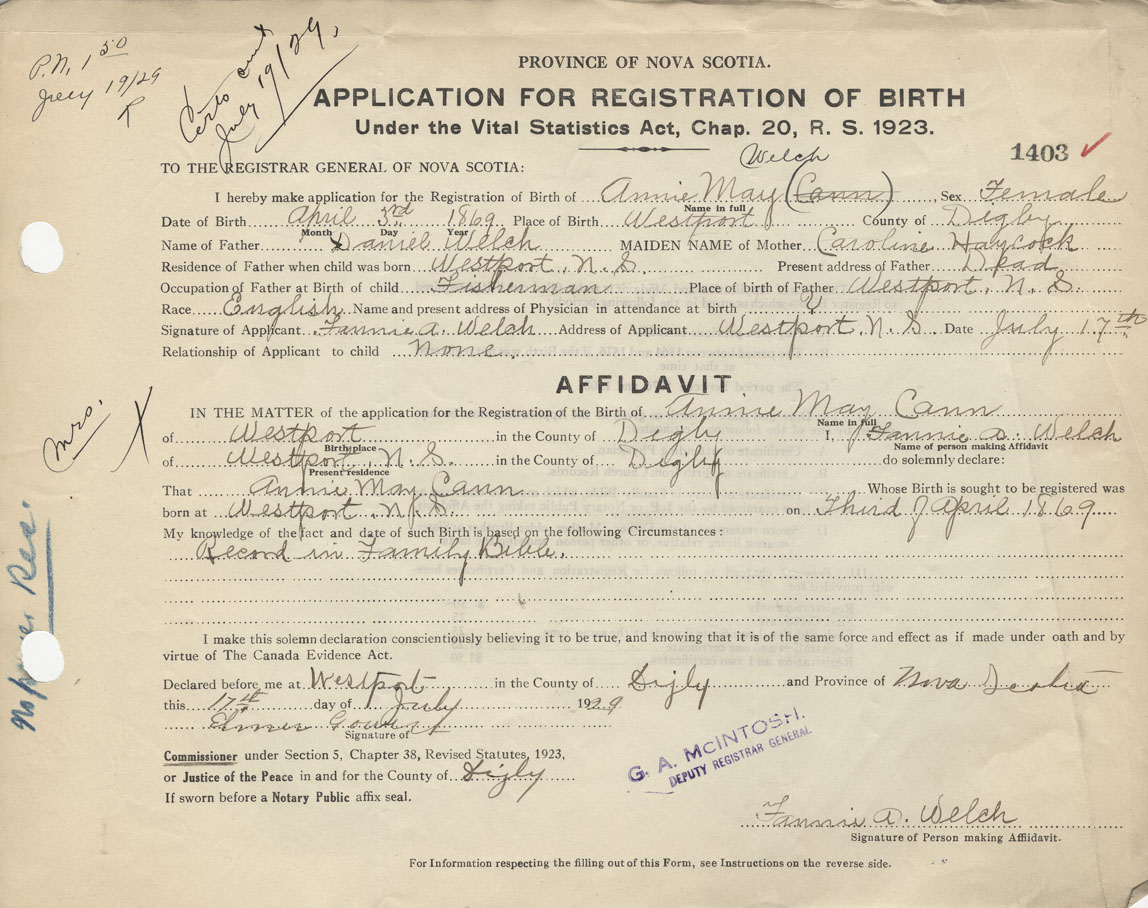 P.N. 1 50
July 19/29
Certs sent
July 19/29,
PROVINCE OF NOVA SCOTIA.
APPLICATION FOR REGISTRATION OF BIRTH
Under the Vital Statistics Act, Chap. 20, R. S. 1923.
1403 ✓
TO THE REGISTRAR GENERAL OF NOVA SCOTIA:
Welch
I hereby make application for the Registration of Birth of Annie May (Cann), Sex Female
Name in full
Date of Birth April 3rd 1869 Place of Birth Westport County of Digby
Month Day Year
Name of Father Daniel Welch MAIDEN NAME of Mother Caroline Haycock
Residence of Father when child was born Westport, N. S. Present address of Father Dead
Occupation of Father at Birth of child Fisherman Place of birth of Father Westport, N. S.
Race English Name and present address of Physician in attendance at birth ?
Signature of Applicant Fannie A. Welch Address of Applicant Westport, N. S. Date July 17th
Relationship of Applicant to child None
AFFIDAVIT
Mrs. X
IN THE MATTER of the application for the Registration of the Birth of Annie May Cann
Name in full
of Westport in the County of Digby I, Fannie A. Welch
Birthplace Name of person making Affidavit
of Westport, N. S. in the County of Digby do solemnly declare:
Present residence
That Annie May Cann Whose Birth is sought to be registered was
born at Westport N. S. on Third of April 1869
My knowledge of the fact and date of such Birth is based on the following Circumstances:
Record in Family Bible.
I make this solemn declaration conscientiously believing it to be true, and knowing that it is of the same force and effect as if made under oath and by
virtue of The Canada Evidence Act.
Declared before me at Westport in the County of Digby and Province of Nova Scotia
this 17th day of July 1929
Elmer Gower
Signature of
Commissioner under Section 5, Chapter 38, Revised Statutes, 1923,
or Justice of the Peace in and for the County of Digby
If sworn before a Notary Public affix seal.
G. A. MCINTOSH.
DEPUTY REGISTRAR GENERAL
Fannie A. Welch
Signature of Person making Affiidavit.
For Information respecting the filling out of this Form, see Instructions on the reverse side.
Rec.